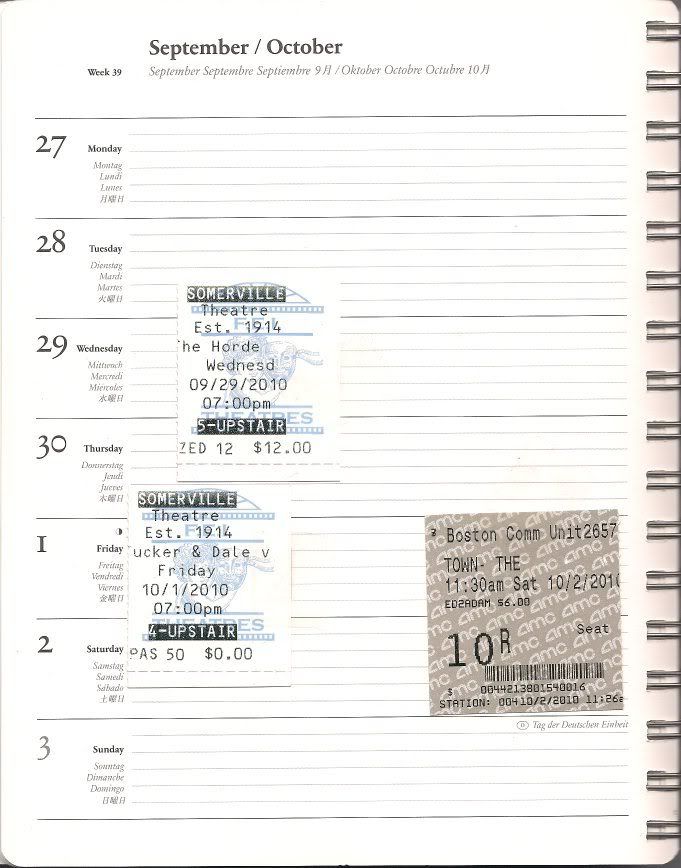 September / October
Week 39
September Septembre Septiembre 9月 / Oktober Octobre Octubre 10月
27 Monday
Montag
Lundi
Lunes
月曜日
28 Tuesday
Dienstag
Mardi
Martes
火曜日
29 Wednesday
Mittwoch
Mercredi
Miércoles
水曜日
SOMERVILLE
Theatre
Est. 1914
he Horde
Wednesd
09/29/2010
07:00pm
THEATRES
5-UPSTAIR
ZED 12 $12.00
30 Thursday
Donnerstag
Jeudi
Jueves
木曜日
SOMERVILLE
Theatre
Est. 1914
ucker & Dale v
Friday
10/1/2010
07:00pm
4-UPSTAIR
PAS 50 $0.00
1 Friday
Freitag
Vendredi
Viernes
金曜日
Boston Comm Unit2657
TOWN- THE
11:30am Sat 10/2/2010
ED2ADAM $6.00
10R Seat
$ 0044213801540016
STATION: 004 10/2/2010 11:26a
amc
2 Saturday
Samstag
Samedi
Sábado
土曜日
D Tag der Deutschen Einheit
3 Sunday
Sonntag
Dimanche
Domingo
日曜日